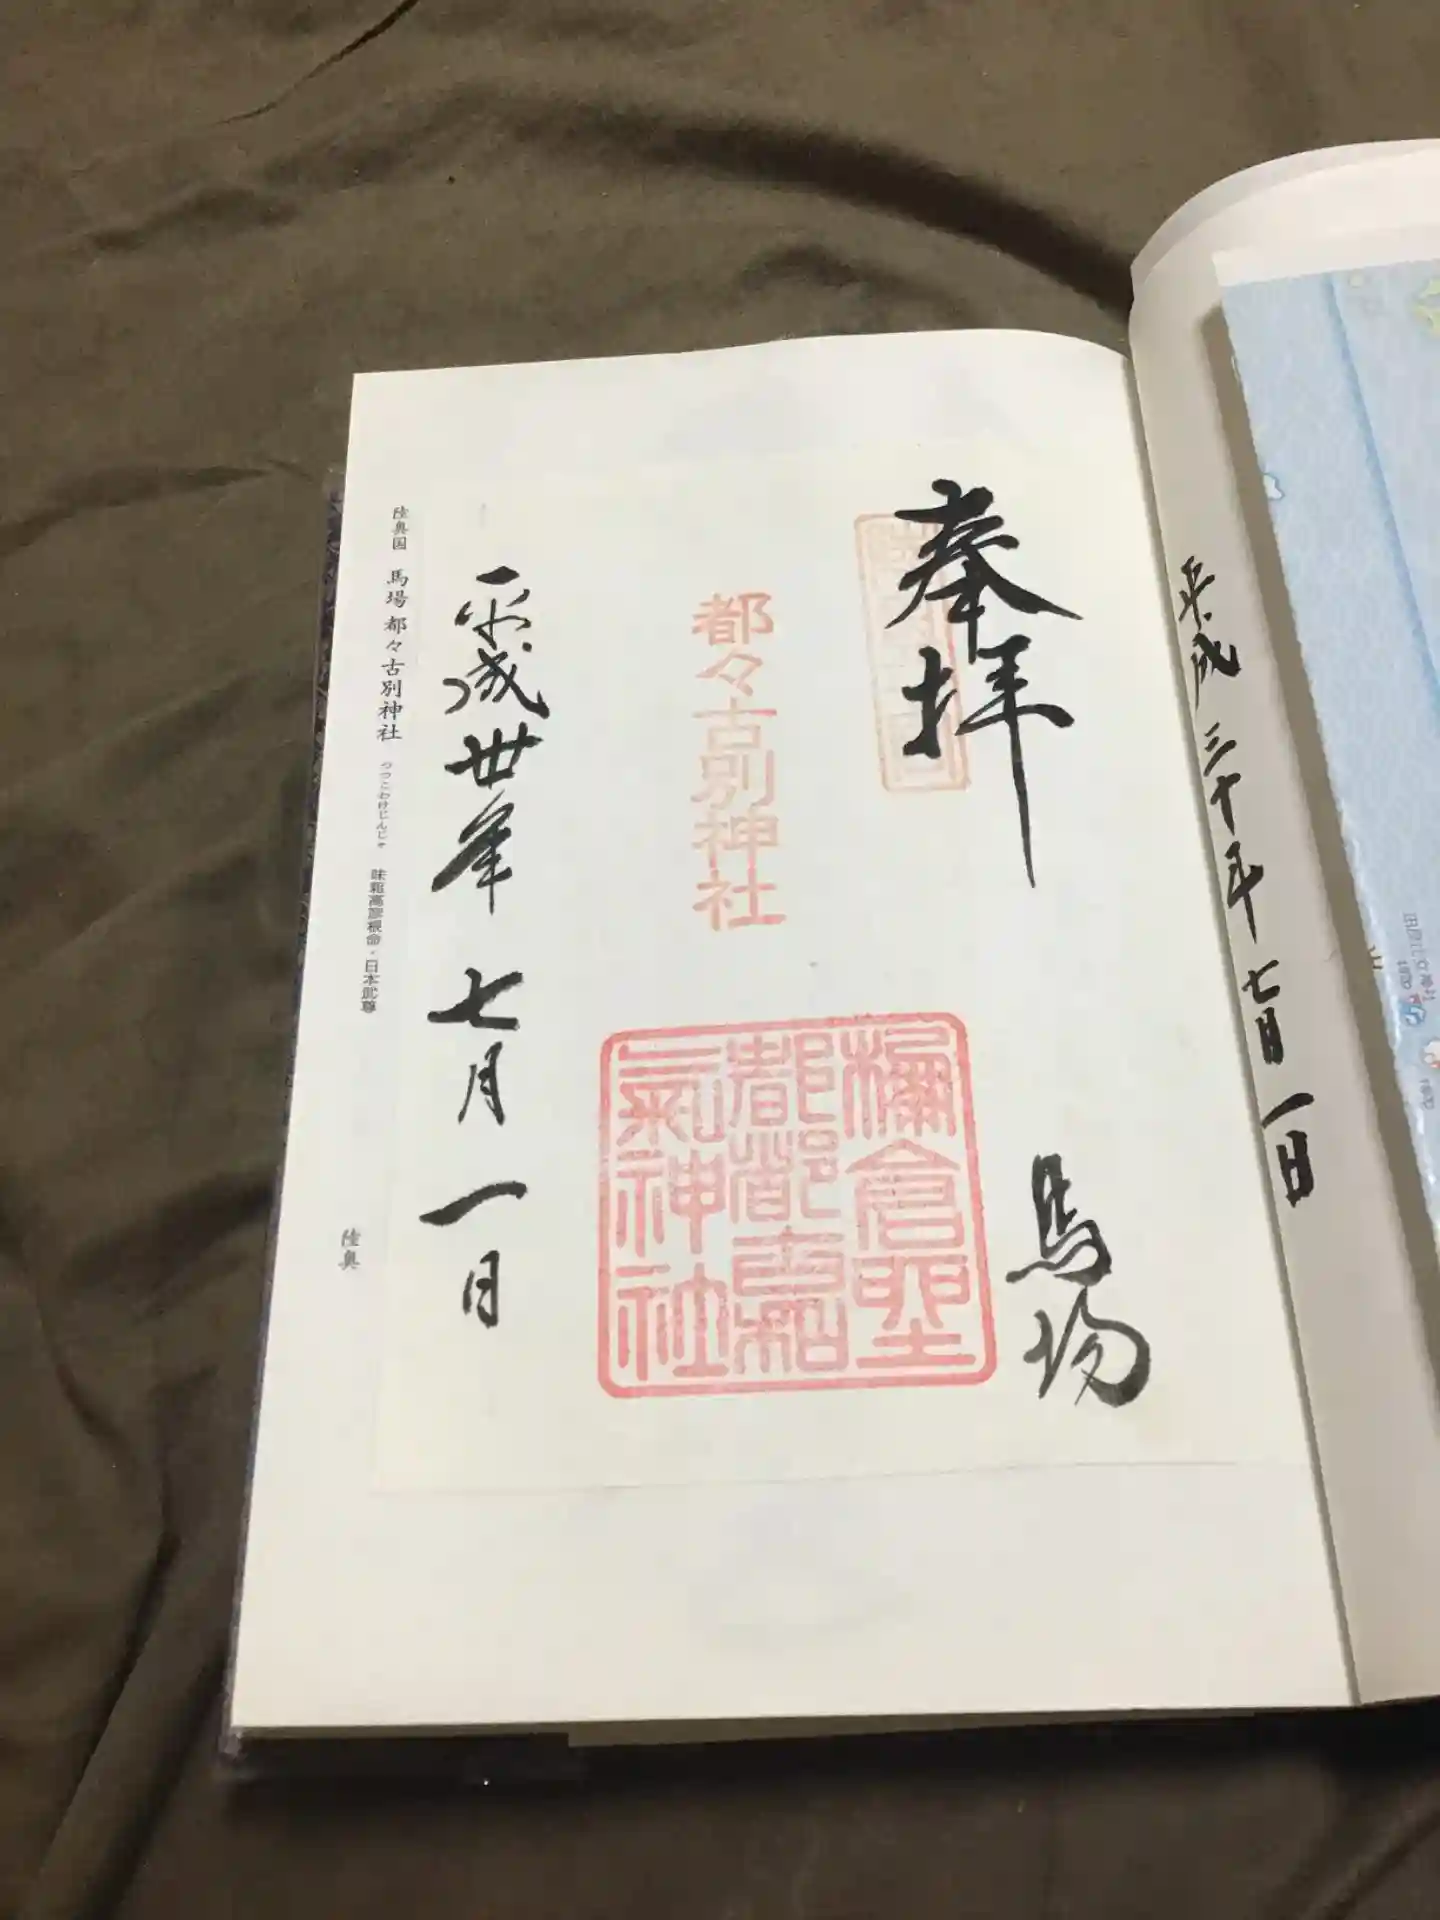 平成三十年七月一日
奉拝
馬場
都々古別神社
平成丗年七月一日
陸奥国 馬場 都々古別神社 つつこわけじんじゃ 味耜高彦根命・日本武尊
陸奥